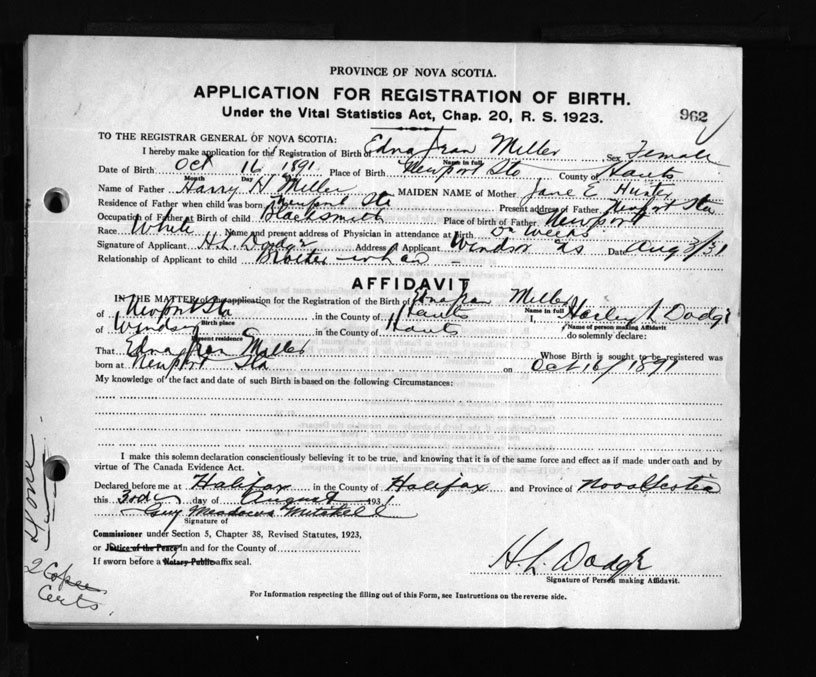 PROVINCE OF NOVA SCOTIA.
APPLICATION FOR REGISTRATION OF BIRTH.
Under the Vital Statistics Act, Chap. 20, R. S. 1923.
962
TO THE REGISTRAR GENERAL OF NOVA SCOTIA:
I hereby make application for the Registration of Birth of Edna Jean Miller Sex Female
Name in full
Date of Birth Oct 16 1891 Place of Birth Newport Sta County of Hants
Month Day
Name of Father Harry H Miller MAIDEN NAME of Mother Jane E Hunter
Residence of Father when child was born Newport Sta Present address of Father Newport Sta
Occupation of Father at Birth of child Blacksmith Place of birth of Father Newport
Race White Name and present address of Physician in attendance at Birth Dr Weeks
Signature of Applicant H. L. Dodge Address of Applicant Windsor NS Date Aug 3/31
Relationship of Applicant to child Brother in law
AFFIDAVIT
IN THE MATTER of the application for the Registration of the Birth of Edna Jean Miller
Name in full
of Newport Sta in the County of Hants I, Harley L Dodge
Birth place Name of person making Affidavit
of Windsor in the County of Hants do solemnly declare:
Present residence
That Edna Jean Miller Whose Birth is sought to be registered was
born at Newport Sta on Oct 16/1891
My knowledge of the fact and date of such Birth is based on the following Circumstances:
I make this solemn declaration conscientiously believing it to be true, and knowing that it is of the same force and effect as if made under oath and by
virtue of The Canada Evidence Act.
Declared before me at Halifax in the County of Halifax and Province of Nova Scotia
this 3rd day of August 1931
Guy Meadows Mitchell
Signature of
Commissioner under Section 5, Chapter 38, Revised Statutes, 1923,
or Justice of the Peace in and for the County of
If sworn before a Notary Public affix seal.
H. L. Dodge
Signature of Person making Affidavit.
For Information respecting the filling out of this Form, see Instructions on the reverse side.
Done
2 Copies
Certs.